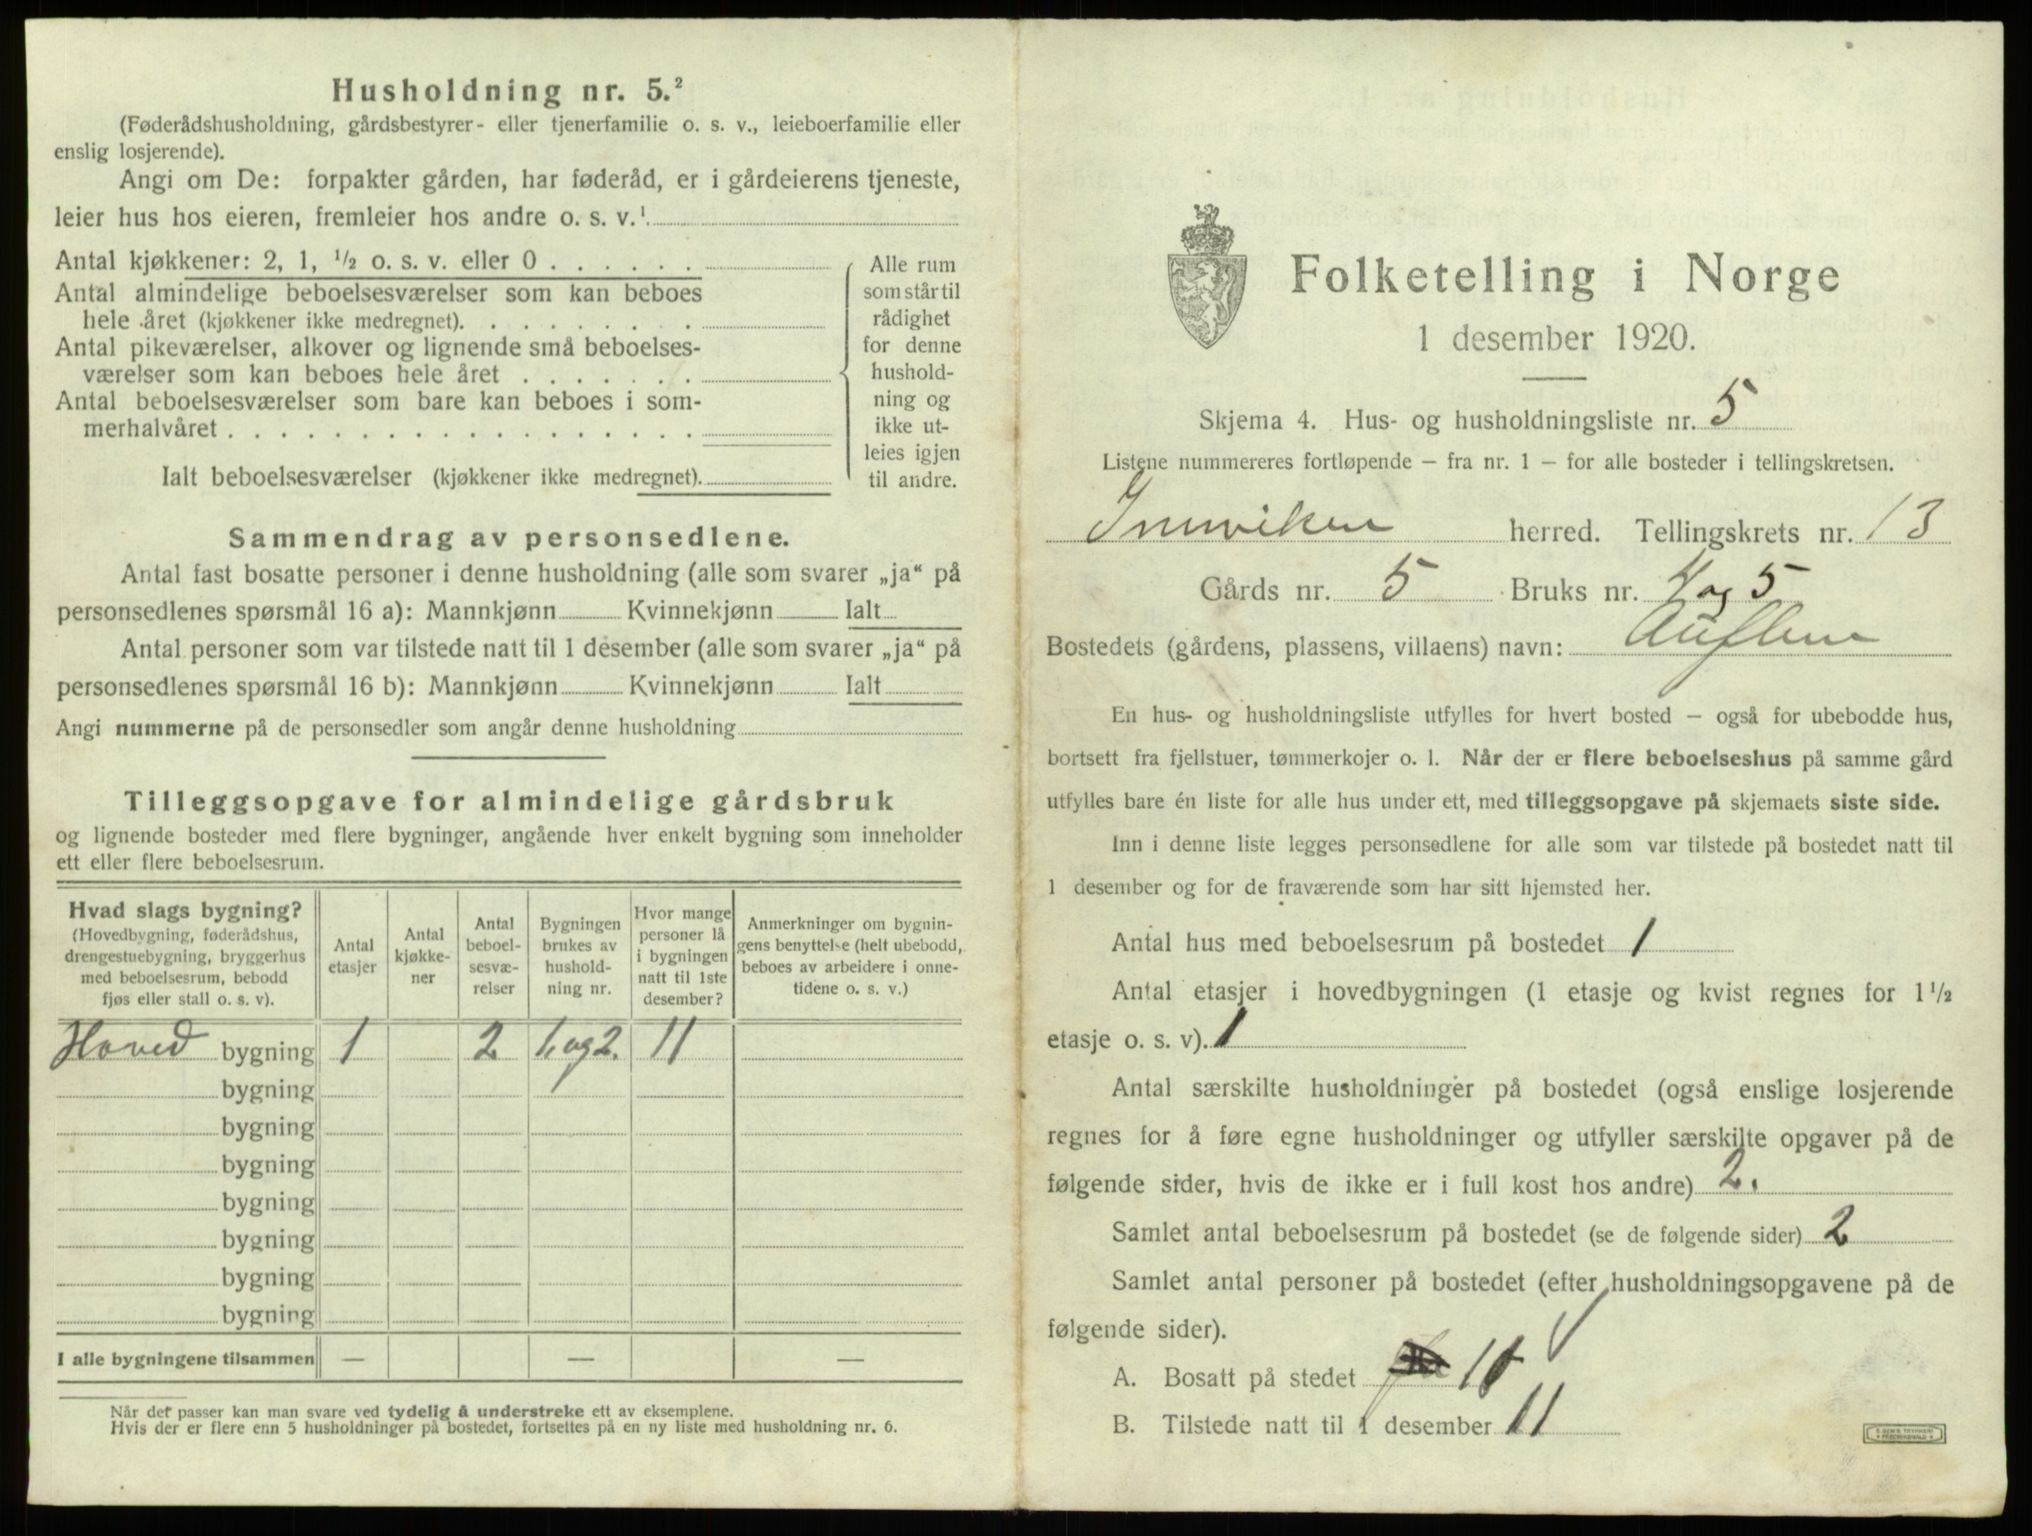 Husholdning nr. 5.²
(Føderådshusholdning, gårdsbestyrer- eller tjenerfamilie o. s. v., leieboerfamilie eller
enslig losjerende).
Angi om De: forpakter gården, har føderåd, er i gårdeierens tjeneste,
leier hus hos eieren, fremleier hos andre o. s. v.¹
Antal kjøkkener: 2, 1, ½ o. s. v. eller 0 . . . . . .
Antal almindelige beboelsesværelser som kan beboes
hele året (kjøkkener ikke medregnet). . . . . . . . .
Antal pikeværelser, alkover og lignende små beboelses-
værelser som kan beboes hele året . . . . . . .
Antal beboelsesværelser som bare kan beboes i som-
merhalvåret . . . . . . . . . . . . . . . . . .
Ialt beboelsesværelser (kjøkkener ikke medregnet).
Alle rum
som står til
rådighet
for denne
hushold-
ning og
ikke ut-
leies igjen
til andre.
Sammendrag av personsedlene.
Antal fast bosatte personer i denne husholdning (alle som svarer „ja“ på
personsedlenes spørsmål 16 a): Mannkjønn Kvinnekjønn Ialt
Antal personer som var tilstede natt til 1 desember (alle som svarer „ja“ på
personsedlenes spørsmål 16 b): Mannkjønn Kvinnekjønn Ialt
Angi nummerne på de personsedler som angår denne husholdning
Tilleggsopgave for almindelige gårdsbruk
og lignende bosteder med flere bygninger, angående hver enkelt bygning som inneholder
ett eller flere beboelsesrum.
Hvad slags bygning?
(Hovedbygning, føderådshus,
drengestuebygning, bryggerhus
med beboelsesrum, bebodd
fjøs eller stall o. s. v).
Antal
etasjer
Antal
kjøkke-
ner
Antal
beboel-
sesvæ-
relser
Bygningen
brukes av
hushold-
ning nr.
Hvor mange
personer lå
i bygningen
natt til 1ste
desember?
Anmerkninger om bygnin-
gens benyttelse (helt ubebodd,
beboes av arbeidere i onne-
tidene o. s. v.)
Hoved bygning 1 2 1. og 2. 11
bygning
bygning
bygning
bygning
bygning
bygning
bygning
I alle bygningene tilsammen — — —
Når det passer kan man svare ved tydelig å understreke ett av eksemplene.
Hvis der er flere enn 5 husholdninger på bostedet, fortsettes på en ny liste med husholdning nr. 6.
Folketelling i Norge
1 desember 1920.
Skjema 4. Hus- og husholdningsliste nr. 5
Listene nummereres fortløpende — fra nr. 1 — for alle bosteder i tellingskretsen.
Innviken herred. Tellingskrets nr. 13
Gårds nr. 5 Bruks nr. 4 og 5
Bostedets (gårdens, plassens, villaens) navn: Auflem
En hus- og husholdningsliste utfylles for hvert bosted — også for ubebodde hus,
bortsett fra fjellstuer, tømmerkojer o. l. Når der er flere beboelseshus på samme gård
utfylles bare én liste for alle hus under ett, med tilleggsopgave på skjemaets siste side.
Inn i denne liste legges personsedlene for alle som var tilstede på bostedet natt til
1 desember og for de fraværende som har sitt hjemsted her.
Antal hus med beboelsesrum på bostedet 1
Antal etasjer i hovedbygningen (1 etasje og kvist regnes for 1½
etasje o. s. v). 1
Antal særskilte husholdninger på bostedet (også enslige losjerende
regnes for å føre egne husholdninger og utfyller særskilte opgaver på de
følgende sider, hvis de ikke er i full kost hos andre) 2.
Samlet antal beboelsesrum på bostedet (se de følgende sider) 2
Samlet antal personer på bostedet (efter husholdningsopgavene på de
følgende sider).
A. Bosatt på stedet
B. Tilstede natt til 1 desember 11